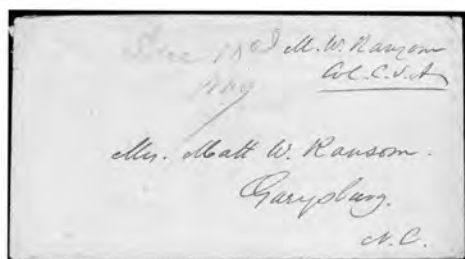 M. W. Ransom
Col. C. S. A
Mrs. Matt W. Ransom.
Garysburg.
N. C.